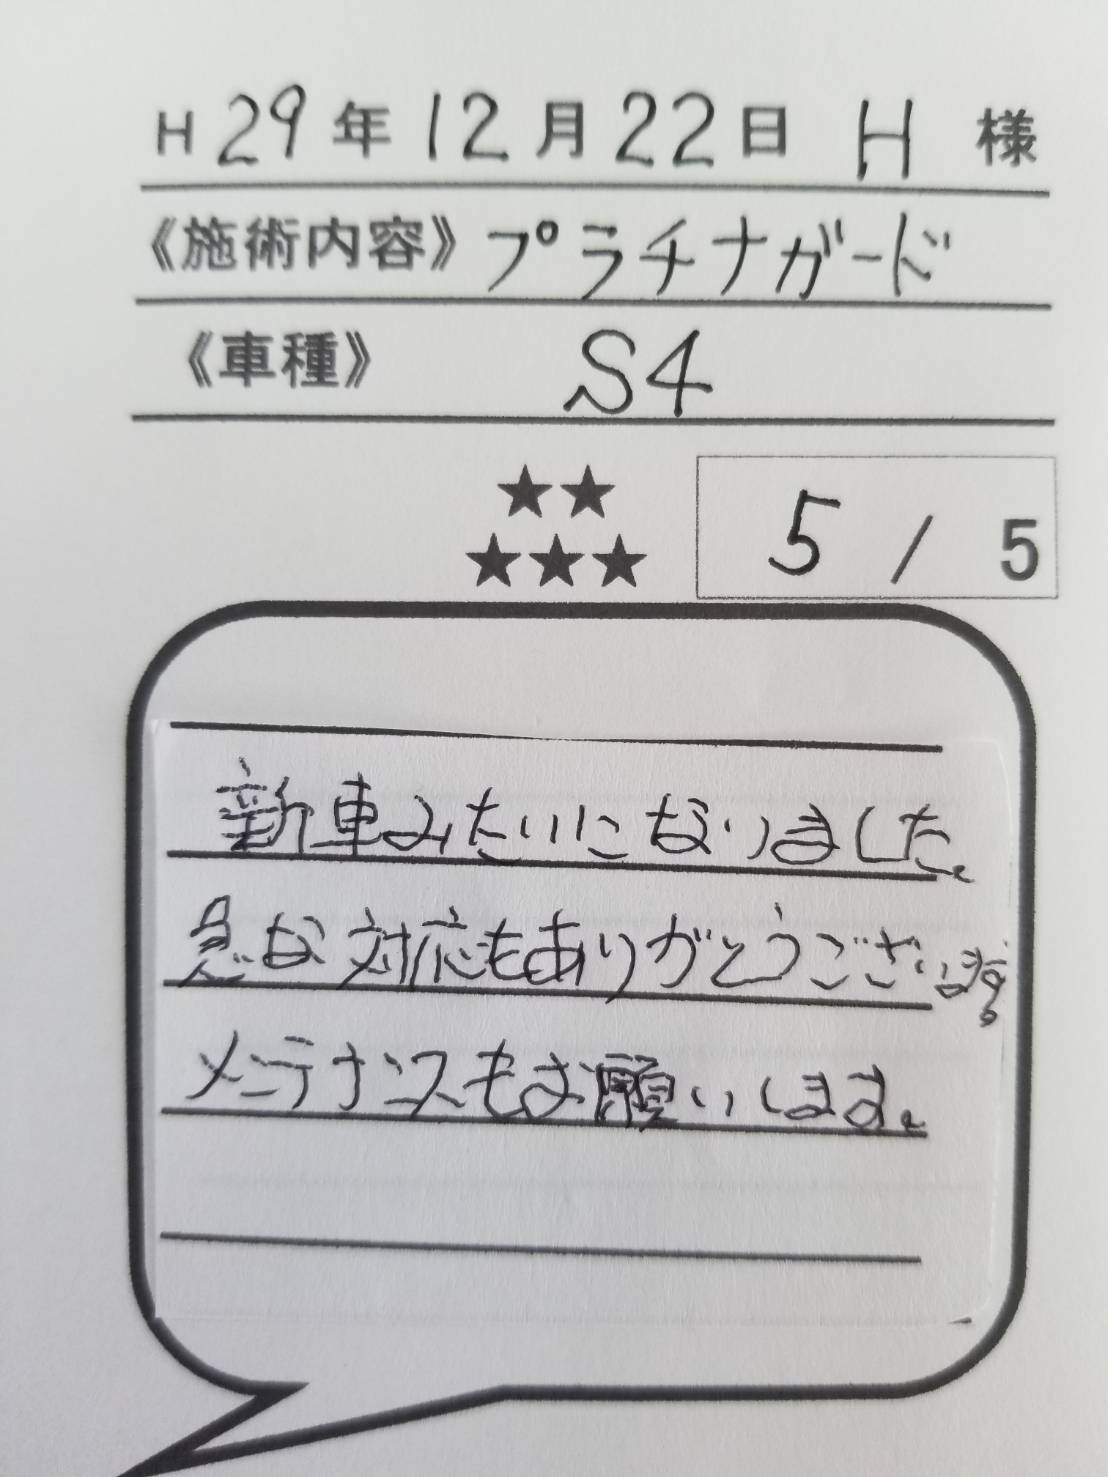 H 29年 12月 22日 H 様
《施術内容》プラチナガード
《車種》 S4
★★
★★★ 5 / 5
新車みたいになりました。
急な対応もありがとうございます。
メンテナンスもお願いします。